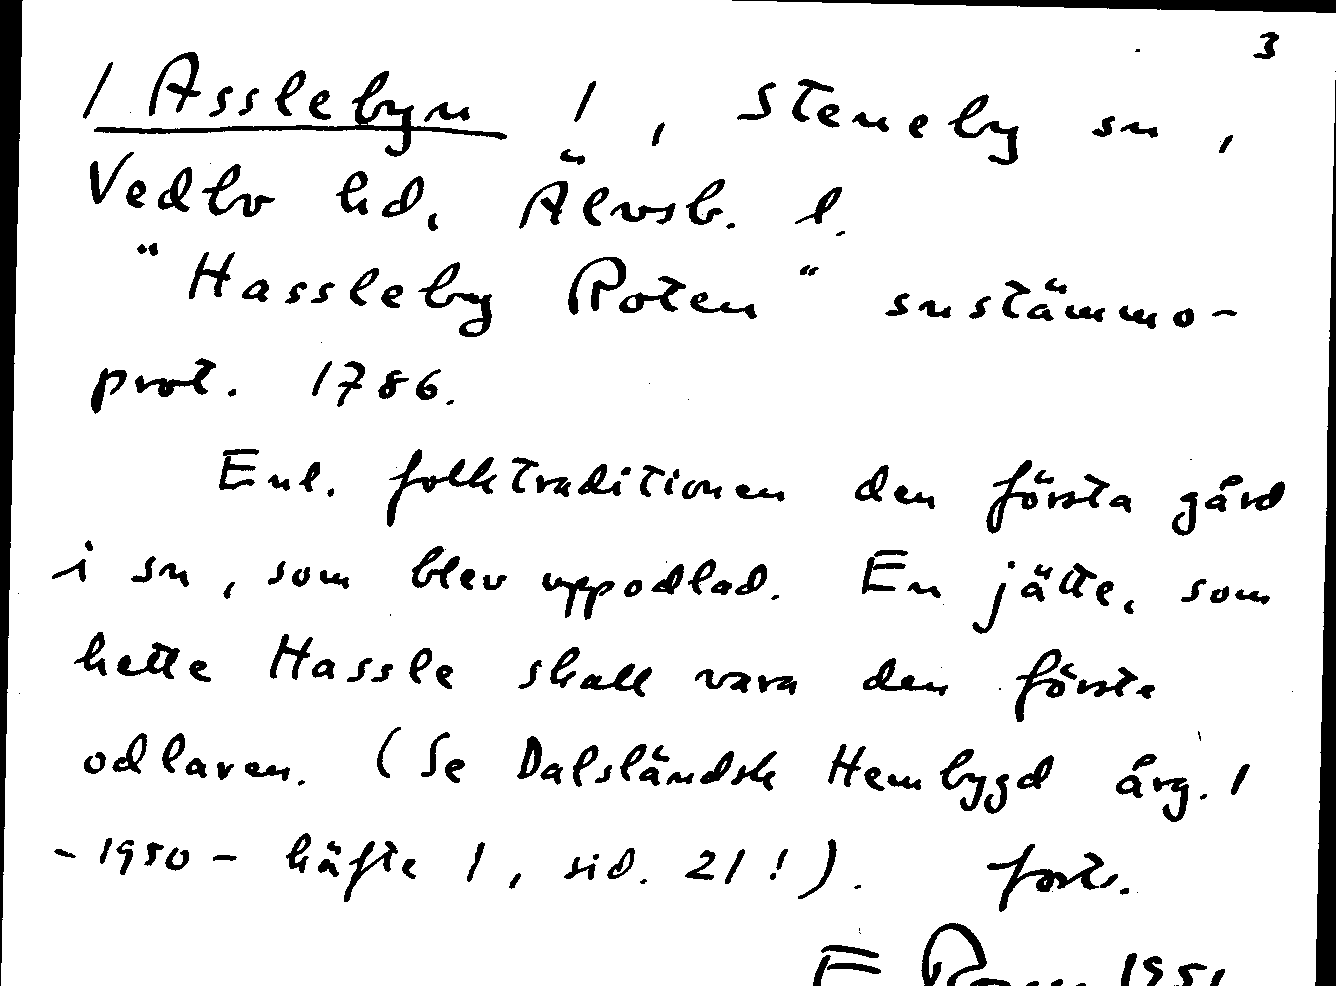 3
/ Asslebyn /, Steneby sn,
Vedbo hd, Älvsb. l.
"Hassleby Roten" snstämmo-
prot. 1786.
Enl. folktraditionen den första gård
i sn, som blev uppodlad. En jätte, som
hette Hassle skall vara den förste
odlaren. (Se Dalsländsk Hembygd årg. 1
-1950- häfte 1, sid. 21!). forts.
E 1951